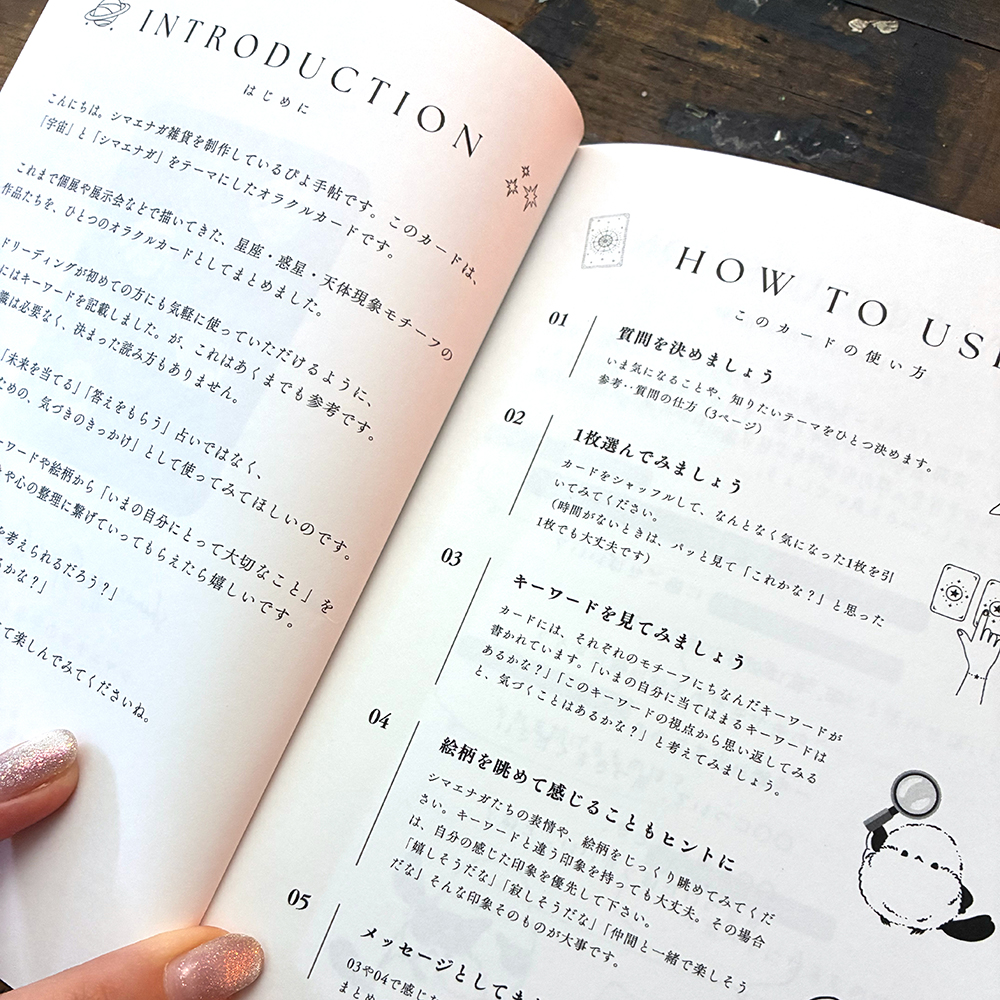 INTRODUCTION
はじめに
こんにちは。シマエナガ雑貨を制作しているぴよ手帖です。このカードは、
「宇宙」と「シマエナガ」をテーマにしたオラクルカードです。
これまで個展や展示会などで描いてきた、星座・惑星・天体現象モチーフの
作品たちを、ひとつのオラクルカードとしてまとめました。
ドリーディングが初めての方にも気軽に使っていただけるように、
にはキーワードを記載しました。が、これはあくまでも参考です。
識は必要なく、決まった読み方もありません。
「未来を当てる」「答えをもらう」占いではなく、
ための、気づきのきっかけ」として使ってみてほしいのです。
ーワードや絵柄から「いまの自分にとって大切なこと」を
や心の整理に繋げていってもらえたら嬉しいです。
を考えられるだろう？」
るかな？」
て楽しんでみてくださいね。
HOW TO USE
このカードの使い方
01
質問を決めましょう
いま気になることや、知りたいテーマをひとつ決めます。
参考：質問の仕方（3ページ）
02
1枚選んでみましょう
カードをシャッフルして、なんとなく気になった1枚を引
いてみてください。
（時間がないときは、パッと見て「これかな？」と思った
1枚でも大丈夫です）
03
キーワードを見てみましょう
カードには、それぞれのモチーフにちなんだキーワードが
書かれています。「いまの自分に当てはまるキーワードは
あるかな？」「このキーワードの視点から思い返してみる
と、気づくことはあるかな？」と考えてみましょう。
04
絵柄を眺めて感じることもヒントに
シマエナガたちの表情や、絵柄をじっくり眺めてみてくだ
さい。キーワードと違う印象を持っても大丈夫。その場合
は、自分の感じた印象を優先して下さい。
「嬉しそうだな」「寂しそうだな」「仲間と一緒で楽しそう
だな」そんな印象そのものが大事です。
05
メッセージとして
03や04で感じ
まとめ